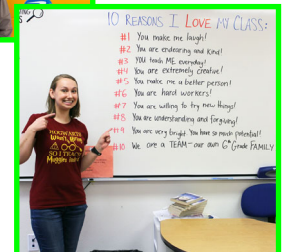 10 REASONS I LOVE MY CLASS:
#1 You make me laugh!
#2 You are endearing and kind!
#3 You teach ME everyday!
#4 You are extremely creative!
#5 You make me a better person!
#6 You are hard workers!
#7 You are willing to try new things!
#8 You are understanding and forgiving!
#9 You are very bright. You have so much potential!
#10 We are a TEAM - our own 6th Grade FAMILY
HOGWARTS
Wasn't Hiring
SO I TEACH
Muggles